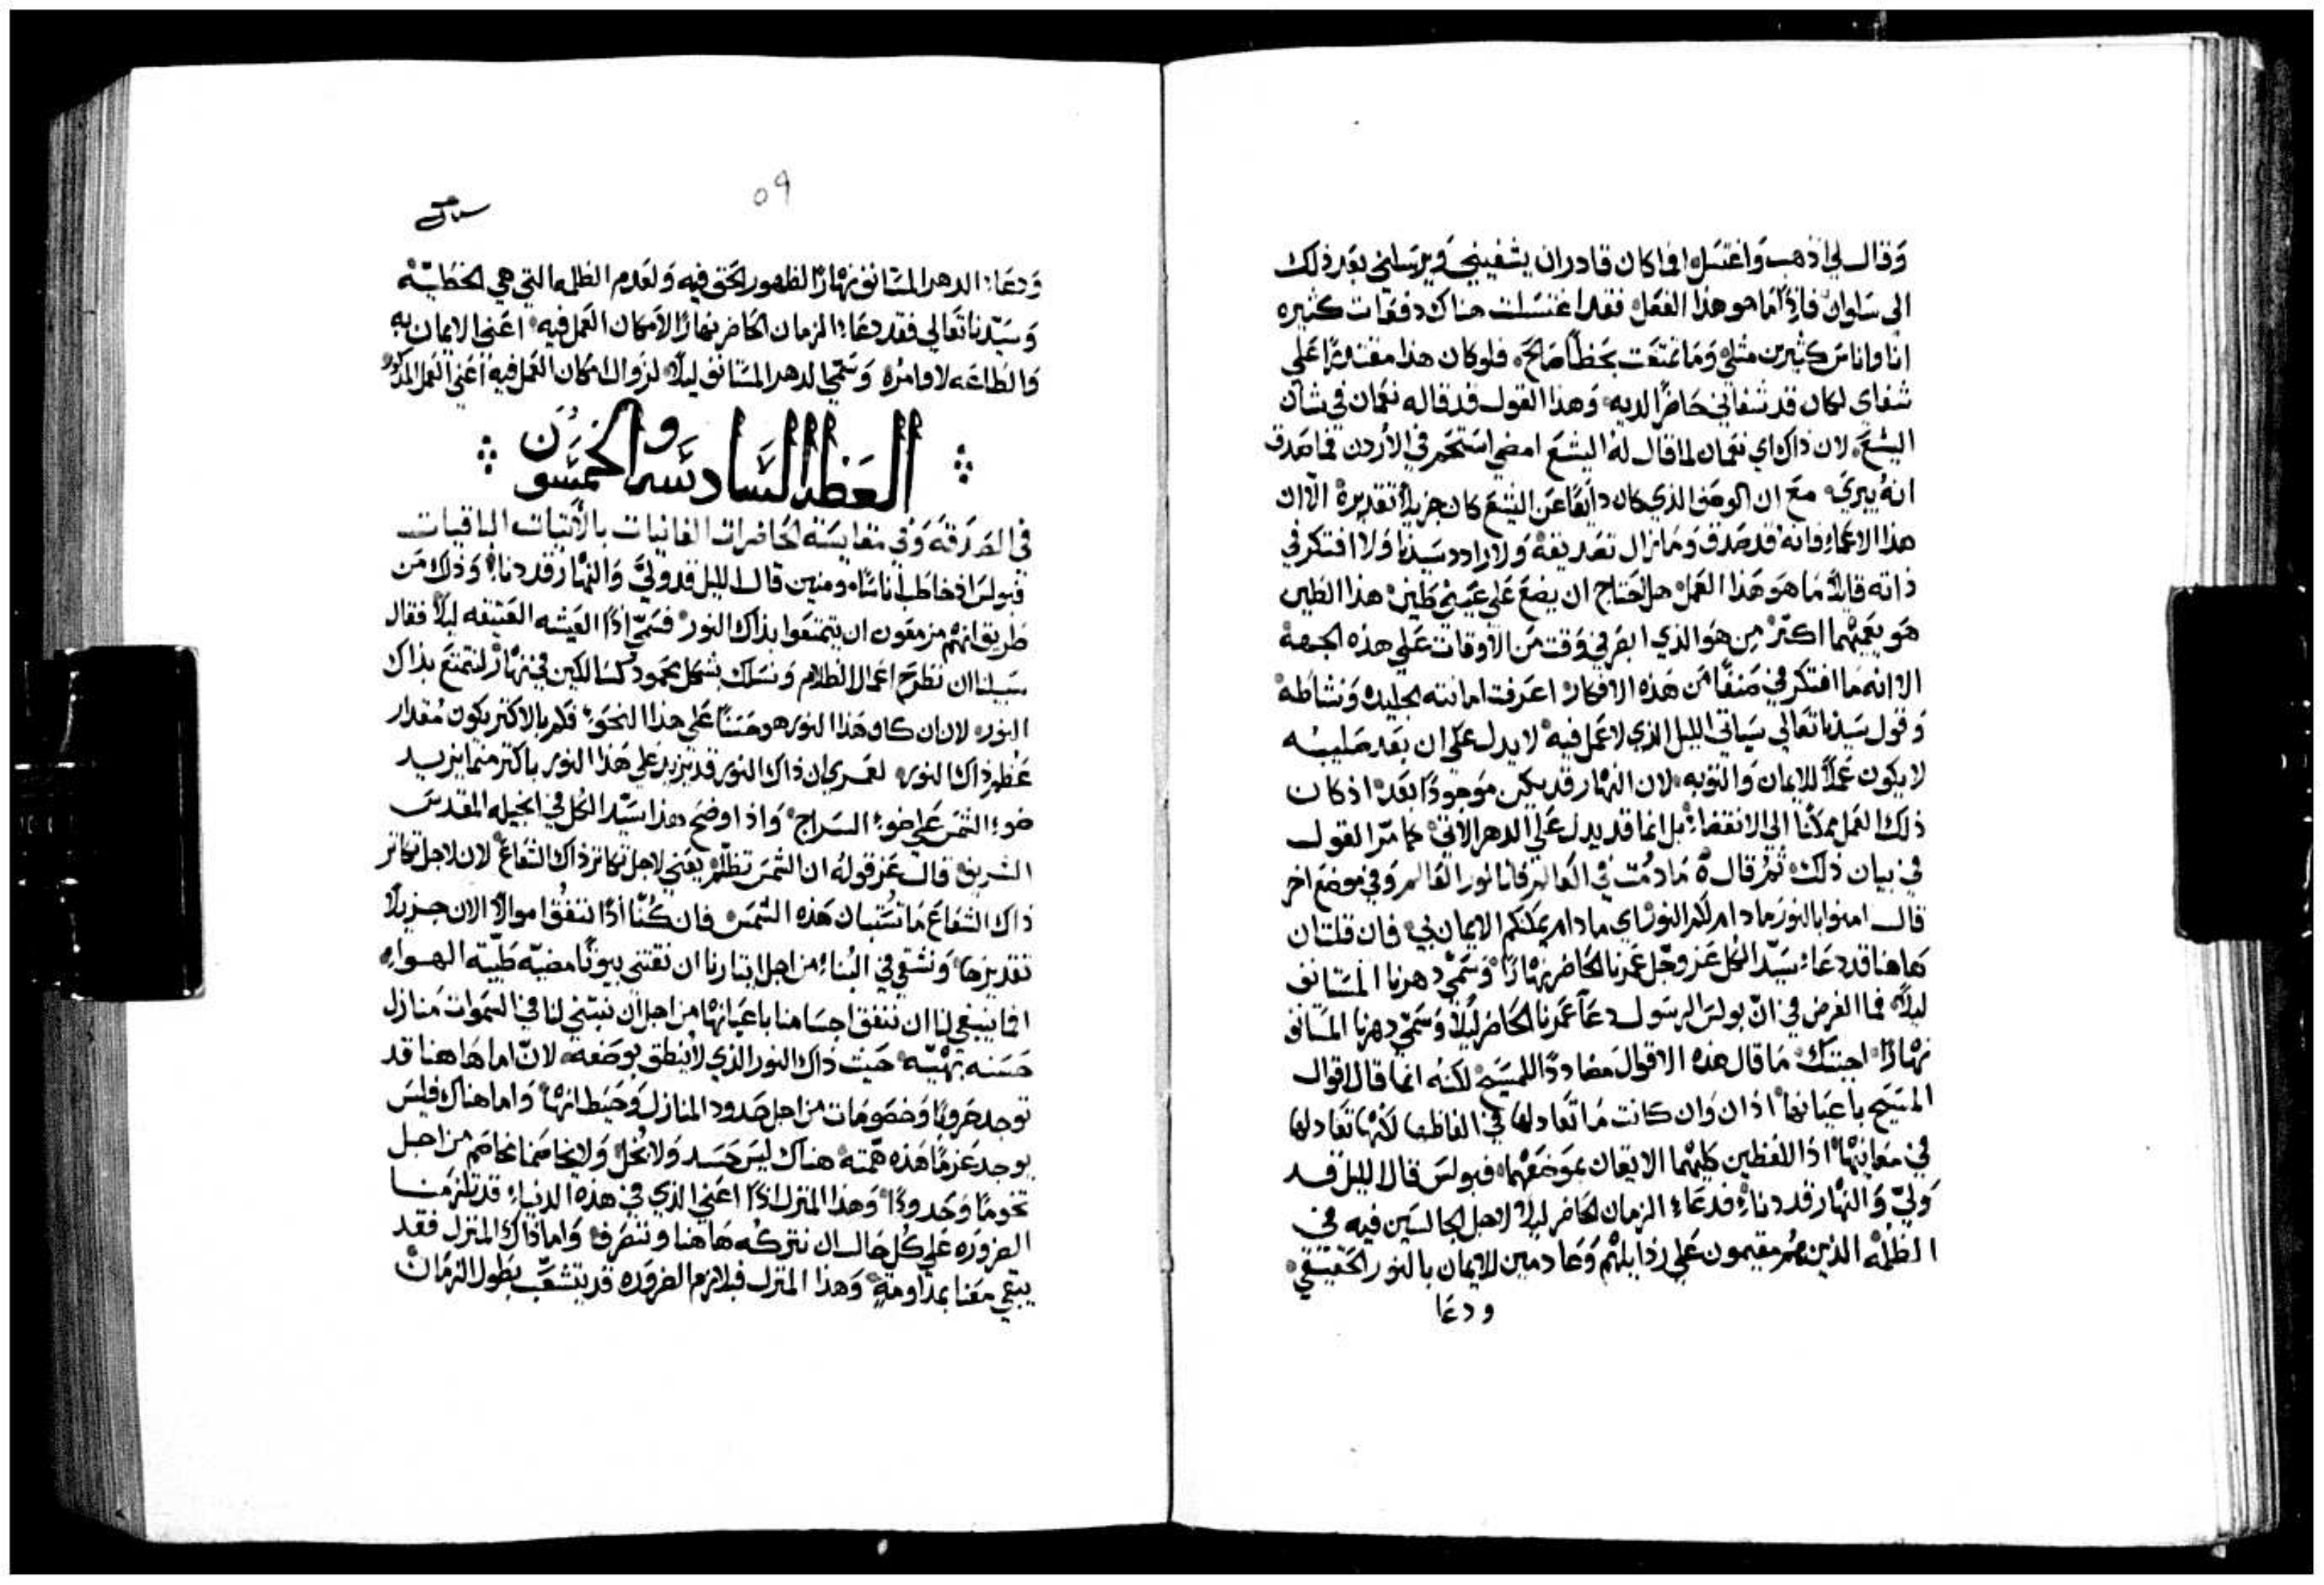 وَقال لي اذهب وَاغتسل افما كان قادر ان يشفيني وَيرسلني بعد ذلك
الى سَلوان فاذًا مَا هو هذا الفعل فقد اغتسلت هناك دفعَات كثيره
انا واناسَ كثيرين مثلي وَمَا تمتعَت بحَظاً صَالحَ فلو كان هذا مقتدرًا عَلي
شفاي لكان قد شفاني حَاضرًا لديه وَهذا القول قد قاله نعمان في شان
اليشعَ لان ذاك اي نعمان لما قال له اليشعَ امضي استحمر في الاردن فما صَدق
انه يبرئ معَ ان الوصَف الذي كان ذايعًا عَن اليشعَ كان جزيلاً تقديره الا ان
هذا الاعمَا فانه قد صَدق وَمَا زال تصَديقه وَلا رادد سَيدنا وَلا افتكر في
ذاته قايلاً مَا هوَ هَذا العَمل هل احتاج ان يضعَ عَلي عَينيَ طَين هذا الطين
هوَ يعَميهما اكتر من هوَ الذي ابصَر في وَقت مَن الاوقات عَلي هذه الجهة
الا انه مَا افتكر في صَنفاً مَن هَذه الافكار اعَرفت امانته الجليله وَنشاطه
وَقول سَيدنا تعَالي سَياتي الليل الذي لا عَمل فيه لا يدل عَلي ان بعَد صَليبه
لا يكون عَملاً للايمان وَالتوبه لان النهار قد يكن موَجودًا بعَده اذ كان
ذلك العَمل ممكنًا الي الانقضاء بل انما قد يدل عَلي الدهر الاتي كما مرّ القول
في بيان ذلك ثم قال مَا دمت في العَالم فانا نور العَالم وَفي موضعَ اخر
قال امنوا بالنور مَا دام لكم النور اي ما دام يمكنكم الايمان بي فان قلت ان
هَاهنا قد دعَاء سَيّد الكل عَز وجَل عَمرنا الحَاضر نهارًا وَسَمّي دهرنا المسَتانف
ليلاً فما الغرض في انّ بولسَ الرسَول دعَا عَمرنا الحَاضر ليلاً وَسَمّي دهرنا المسَتانف
نهارًا اجبتك مَا قال هذه الاقوال مضاددًا للمسَيح لكنه انما قال اقوال
المسَيح باعَيانها اذ ان وَان كانت مَا تعَادلها في الفاظها لكنها تعَادلها
في معَانيها اذ اللفظين كليهما الايقان بموَضعَهما فبولسَ قال الليل قد
وَليّ وَالنهار قد دنا فدعَاء الزمان الحَاضر ليلاً لاجل الجالسَين فيه في
الظلمه الذين هم مقيمون عَلي رذايلهم وَعَادمين للايمان بالنور الحَقيقي
ودعَا
٥٩
وَدعَاء الدهر المسَتانف نهارًا لظهور الحَق فيه وَلعَدم الظلمه التي هي الخطيّه
وَسَيّدنا تعَالي فقد دعَاء الزمان الحَاضر نهارًا لامكان العَمل فيه اعَني الايمان به
وَالطاعَه لاوامره وَسَمّي الدهر المسَتانف ليلاً لزوال امكان العَمل فيه اعَني العَمل المذكور
العَظه السَادسَه وَالخمسَون
في الصَدقه وَفي مقايسَة الحَاضرات الفانيات بالاتيات الباقيات
فبولسَ اذ خاطب اناسًا مومنين قال الليل قد وليّ وَالنهار قد دنا وَذلك مَن
طريق انهم مزمعَون ان يتمتعَوا بذاك النور فسَمّي اذًا العَيشه العَتيقه ليلاً فقال
سَبيلنا ان نطرح اعَمال الظلام وَنسَلك بشكل محمود كسَالكين في نهار لنتمتعَ بذاك
النور لان ان كان هَذا النور هو حسَنًا عَلي هذا النحَو فكم بالاكتر يكون مقدار
عَظم ذاك النور لعَمري ان ذاك النور قد يزيد عَلي هَذا النور باكتر مما يزيد
ضوء الشمسَ عَلي ضوء السَراج وَاذ اوضح هذا سَيّد الكل في انجيله المقدسَ
الشريف قال عَز قوله ان الشمسَ تظلم يعَني لاجل تكاتر ذاك الشعَاع لان لاجل تكاتر
ذاك الشعَاعَ مَا تستبان هَذه الشمسَ فان كُنّا اذًا ننفق اموالاً الان جزيلاً
تقديرها وَنشقي في البناء من اجل ايتارنا ان نقتني بيوتًا مضيّه طيّبة الهواء
افما ينبغي لنا ان ننفق اجسَامنا باعَيانها من اجل ان تبتني لنا في السموات منازل
حَسَنه بهيّه حَيث ذاك النور الذي لا ينطق بوصَفه لانّ اما هَاهنا قد
توجد حَروبًا وَخصَومَات من اجل حَدود المنازل وَحَيطانها وَاما هناك فليسَ
يوجد عَزمًا هَذه همّته هناك ليسَ حَسَد وَلا بُخل وَلا يخاصَمنا مخاصَم من اجل
تخومًا وَحَدودًا وَهذا المنزل اذًا اعَني الذي في هذه الدنيا قد تلزمنا
الضروره عَلي كُل حَال ان نتركه هَاهنا وننصَرف وَاما ذاك المنزل فقد
يبقي معَنا بمداومةٍ وَهذا المنزل فبلازم الضروره قد يتشعّب بطول الزمان